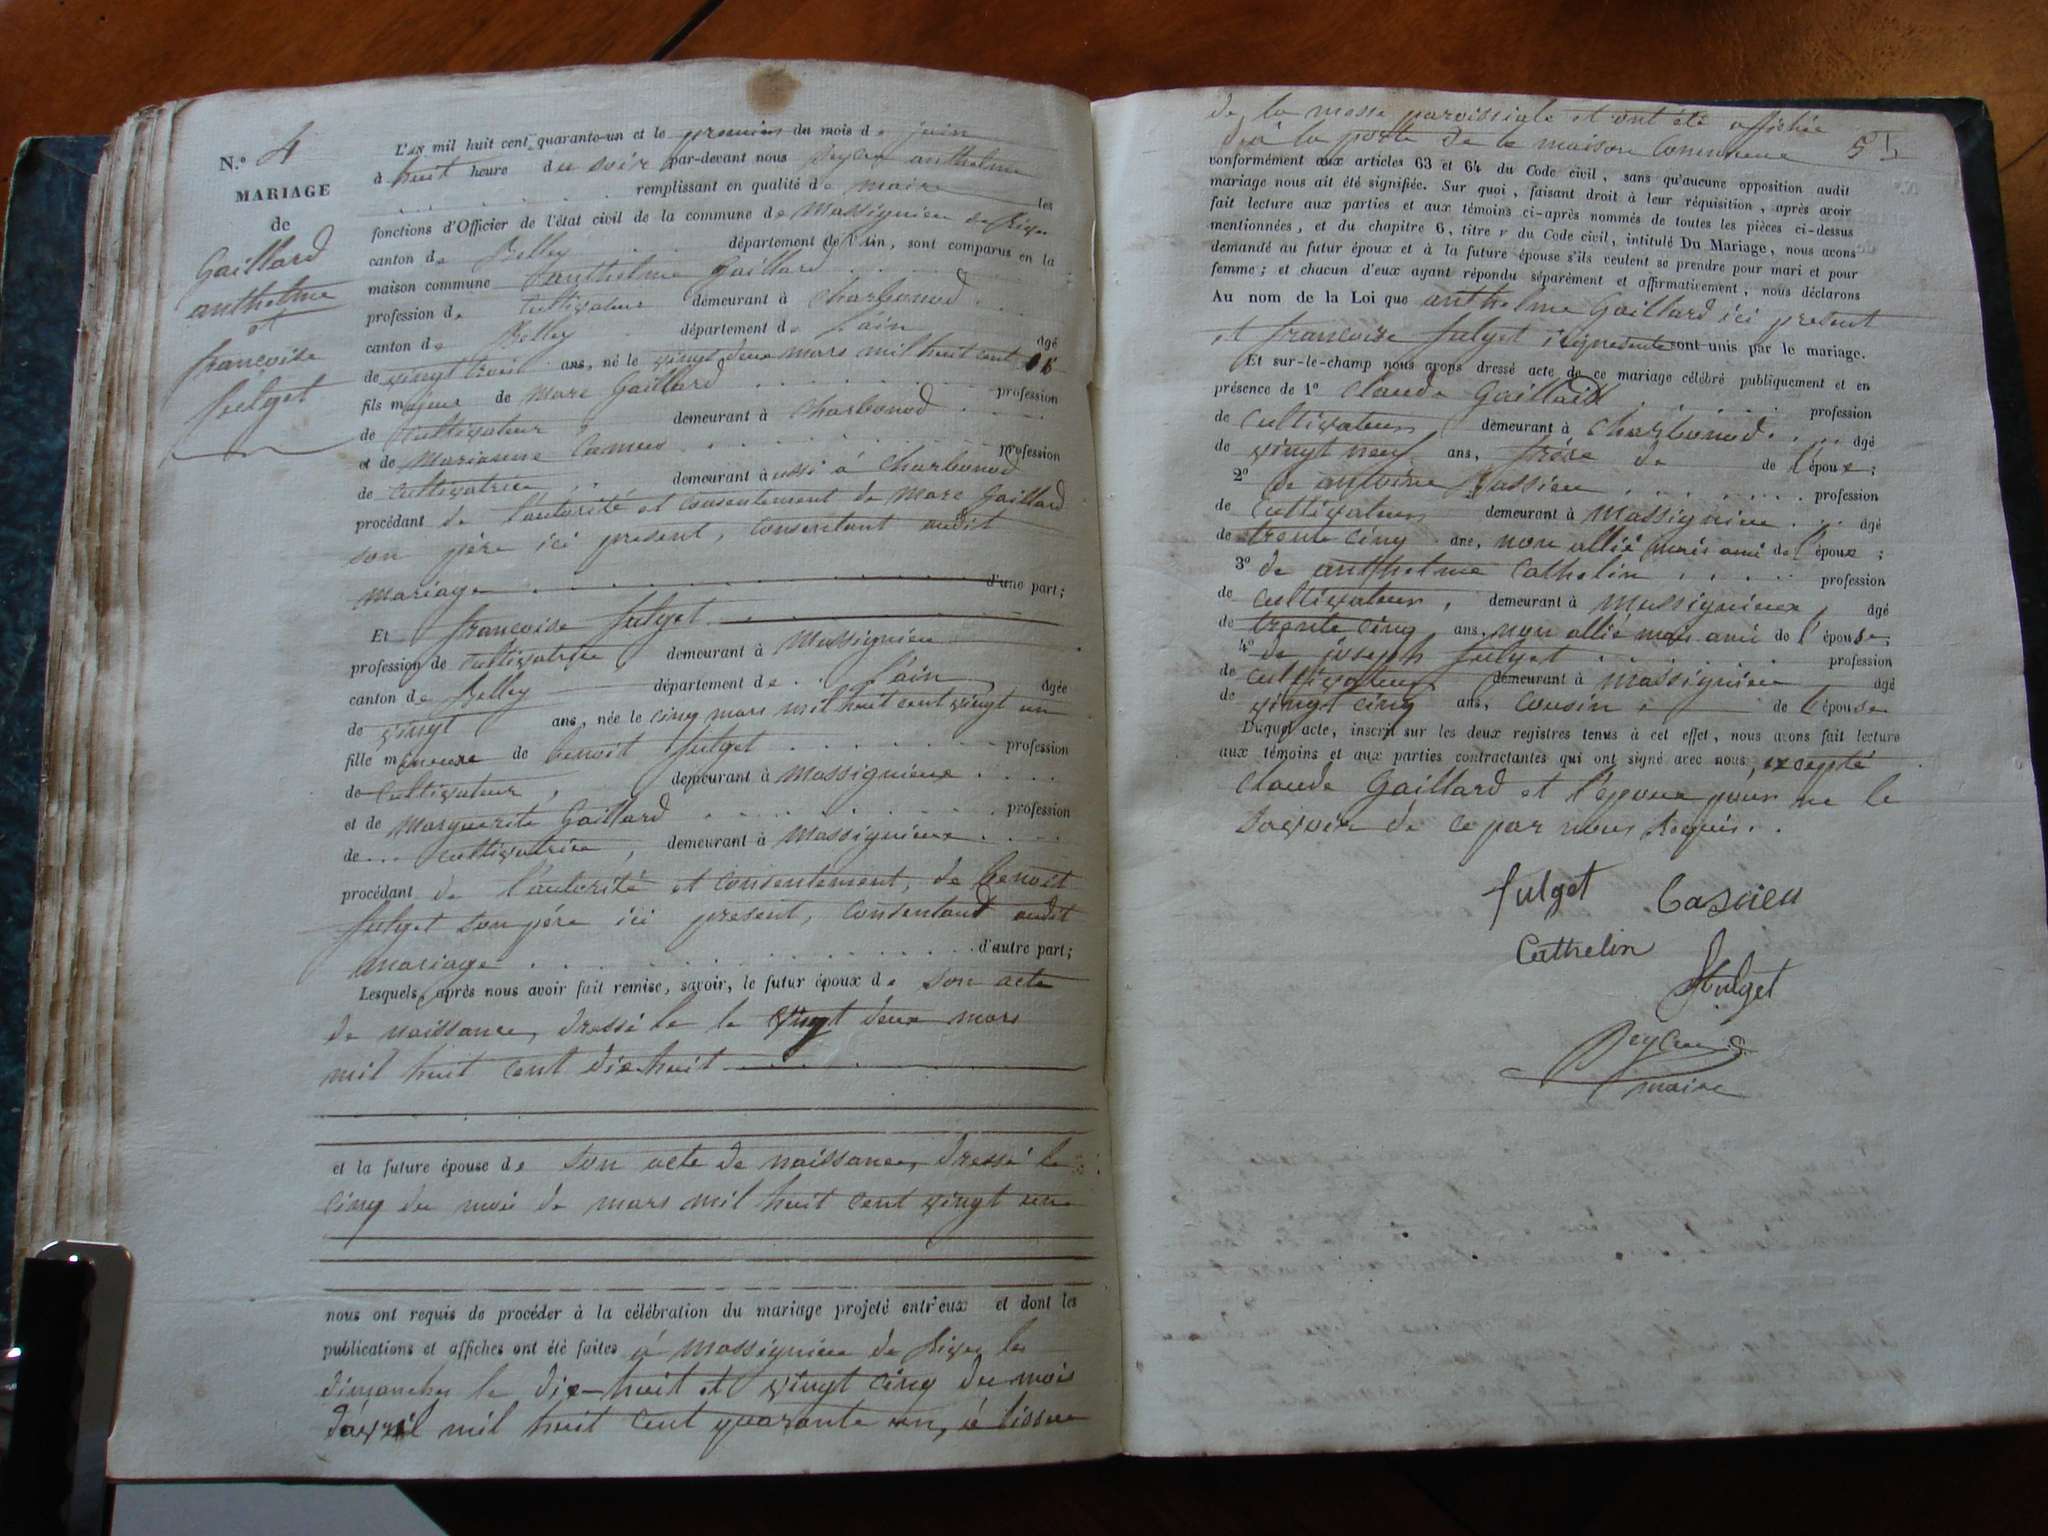 N.° 4
MARIAGE
de
Gaillard
anthelme
et
francoise
fulget
L'an mil huit cent quarante-un et le premier du mois de juin
à huit heure du soir par-devant nous peycru anthelme
remplissant en qualité de maire les
fonctions d'Officier de l'état civil de la commune de Massignieu de Rives
canton de Belley département de l'Ain, sont comparus en la
maison commune anthelme Gaillard
profession de cultivateur demeurant à Charbonod
canton de Belley département de l'ain âgé
de vingt trois ans, né le vingt deux mars mil huit cent 18
fils majeur de Marc Gaillard profession
de cultivateur demeurant à Charbonod
et de Marianne Camus profession
de cultivatrice demeurant à ussi á Charbonod
procédant de l'autorité et consentement de Marc Gaillard
son père ici present, consentant audit
mariage d'une part;
Et francoise fulget
profession de cultivatrice demeurant à Massignieu
canton de Belley département de l'ain âgée
de vingt ans, née le cinq mars mil huit cent vingt un
fille mineure de benoit fulget profession
de cultivateur, demeurant à Massignieux
et de Marguerite Gaillard profession
de cultivatrice, demeurant à Massignieux
procédant de l'autorité et consentement, de benoit
fulget son père ici present, consentant audit
mariage d'autre part;
Lesquels, après nous avoir fait remise, savoir, le futur époux de son acte
de naissance, dressé le le vingt deux mars
mil huit cent dix-huit
et la future épouse de son acte de naissance, dressé le
cinq du mois de mars mil huit cent vingt un
nous ont requis de procéder à la célébration du mariage projeté entr'eux et dont les
publications et affiches ont été faites á Massignieu de Rives les
dimanches le dix-huit et vingt cinq du mois
d'avril mil huit cent quarante un, à lissue
de la messe paroissiale et ont été affichée
à la porte de la maison Commune
conformément aux articles 63 et 64 du Code civil, sans qu'aucune opposition audit
mariage nous ait été signifiée. Sur quoi, faisant droit à leur réquisition, après avoir
fait lecture aux parties et aux témoins ci-après nommés de toutes les pièces ci-dessus
mentionnées, et du chapitre 6, titre v du Code civil, intitulé Du Mariage, nous avons
demandé au futur époux et à la future épouse s'ils veulent se prendre pour mari et pour
femme; et chacun d'eux ayant répondu séparément et affirmativement, nous déclarons
Au nom de la Loi que anthelme Gaillard ici present
et francoise fulget ici presente sont unis par le mariage.
Et sur-le-champ nous avons dressé acte de ce mariage célébré publiquement et en
présence de 1° Claude Gaillard profession
de cultivateur demeurant à Charbonod âgé
de vingt neuf ans, frére de de l'époux;
2° de antoine Bassieu profession
de cultivateur demeurant à Massignieu âgé
de trente cinq ans, non allié mais ami de l'époux;
3° de anthelme Cathelin profession
de cultivateur, demeurant à Massignieux, âgé
de trente cinq ans, non allié mais ami de l'épouse
4° de joseph fulget profession
de cultivateur demeurant à Massignieu âgé
de vingt cinq ans, cousin de l'épouse
Duquel acte, inscrit sur les deux registres tenus à cet effet, nous avons fait lecture
aux témoins et aux parties contractantes qui ont signé avec nous, excepté
Claude Gaillard et l'epoux pour ne le
savoir de ce par nous Requis.
fulget bassieu
Cathelin
fulget
maire